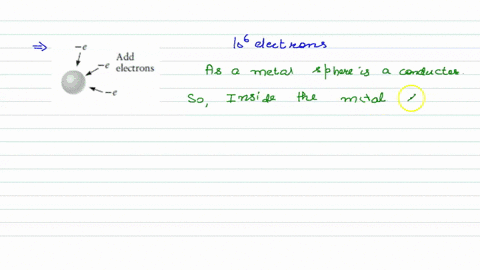 ⇒
-e
-e
Add
electrons
-e
10⁶ electrons
As a metal sphere is a conductor.
So, Inside the metal